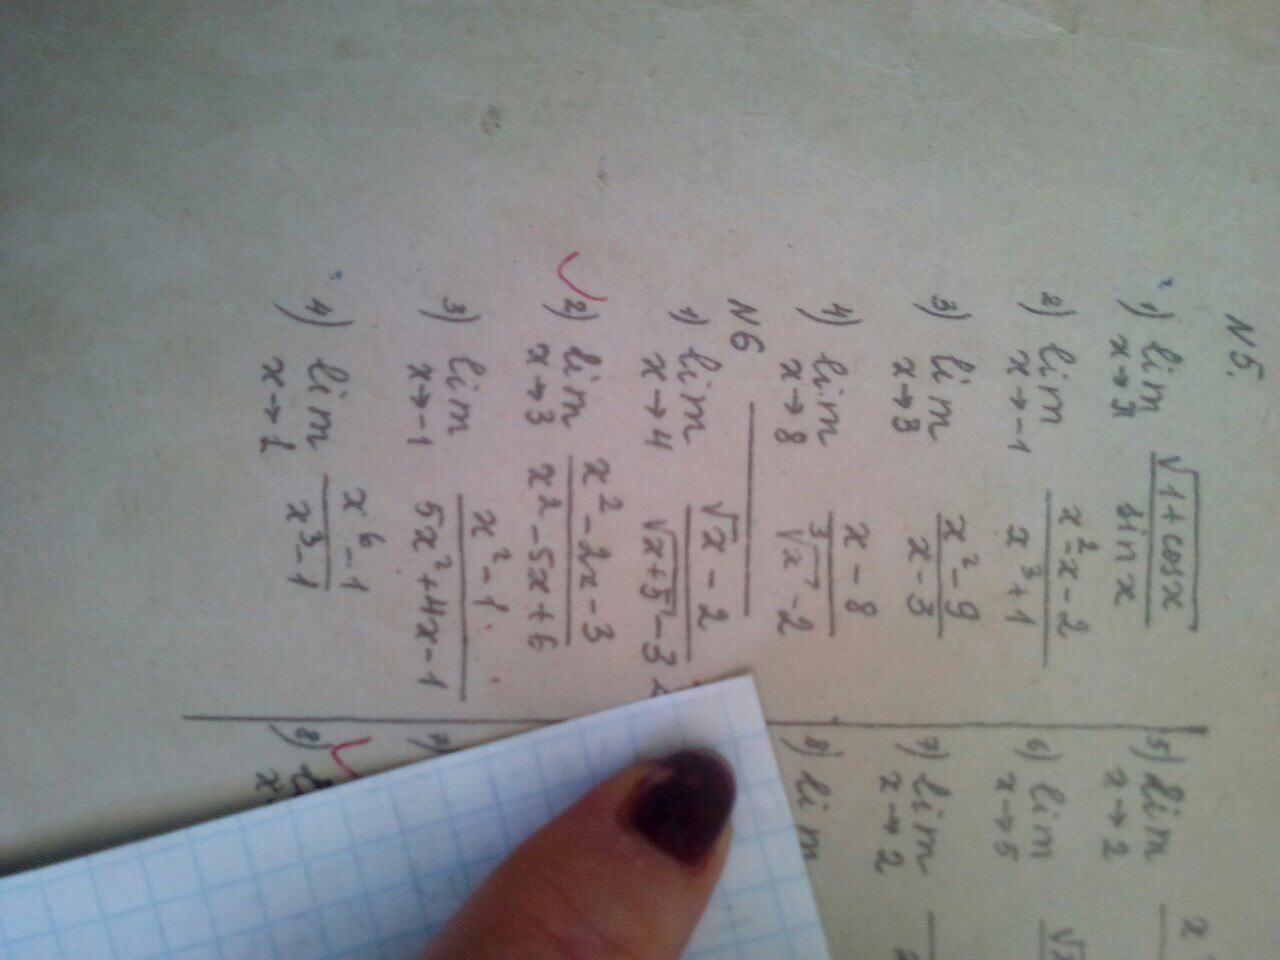 N5.
1) lim x→π √(1+cosx) / sin x
2) lim x→-1 (x²-x-2) / (x³+1)
3) lim x→3 (x²-9) / (x-3)
4) lim x→8 (x-8) / (³√x -2)
N6
1) lim x→4 (√x -2) / (√(x+5) -3)
2) lim x→3 (x²-2x-3) / (x²-5x+6)
3) lim x→-1 (x²-1) / (5x²+4x-1)
4) lim x→1 (x⁶-1) / (x³-1)
5) lim x→2
6) lim x→5
7) lim x→2
8) lim
8)